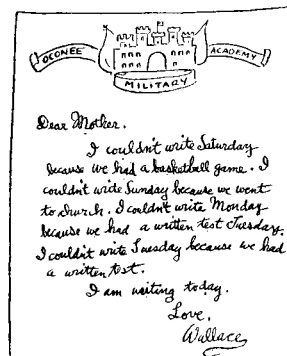 OCONEE
ACADEMY
MILITARY
Dear Mother.
I couldn't write Saturday
because we had a basketball game. I
couldn't write Sunday because we went
to church. I couldn't write Monday
because we had a written test Tuesday.
I couldn't write Tuesday because we had
a written test.
I am writing today.
Love,
Wallace